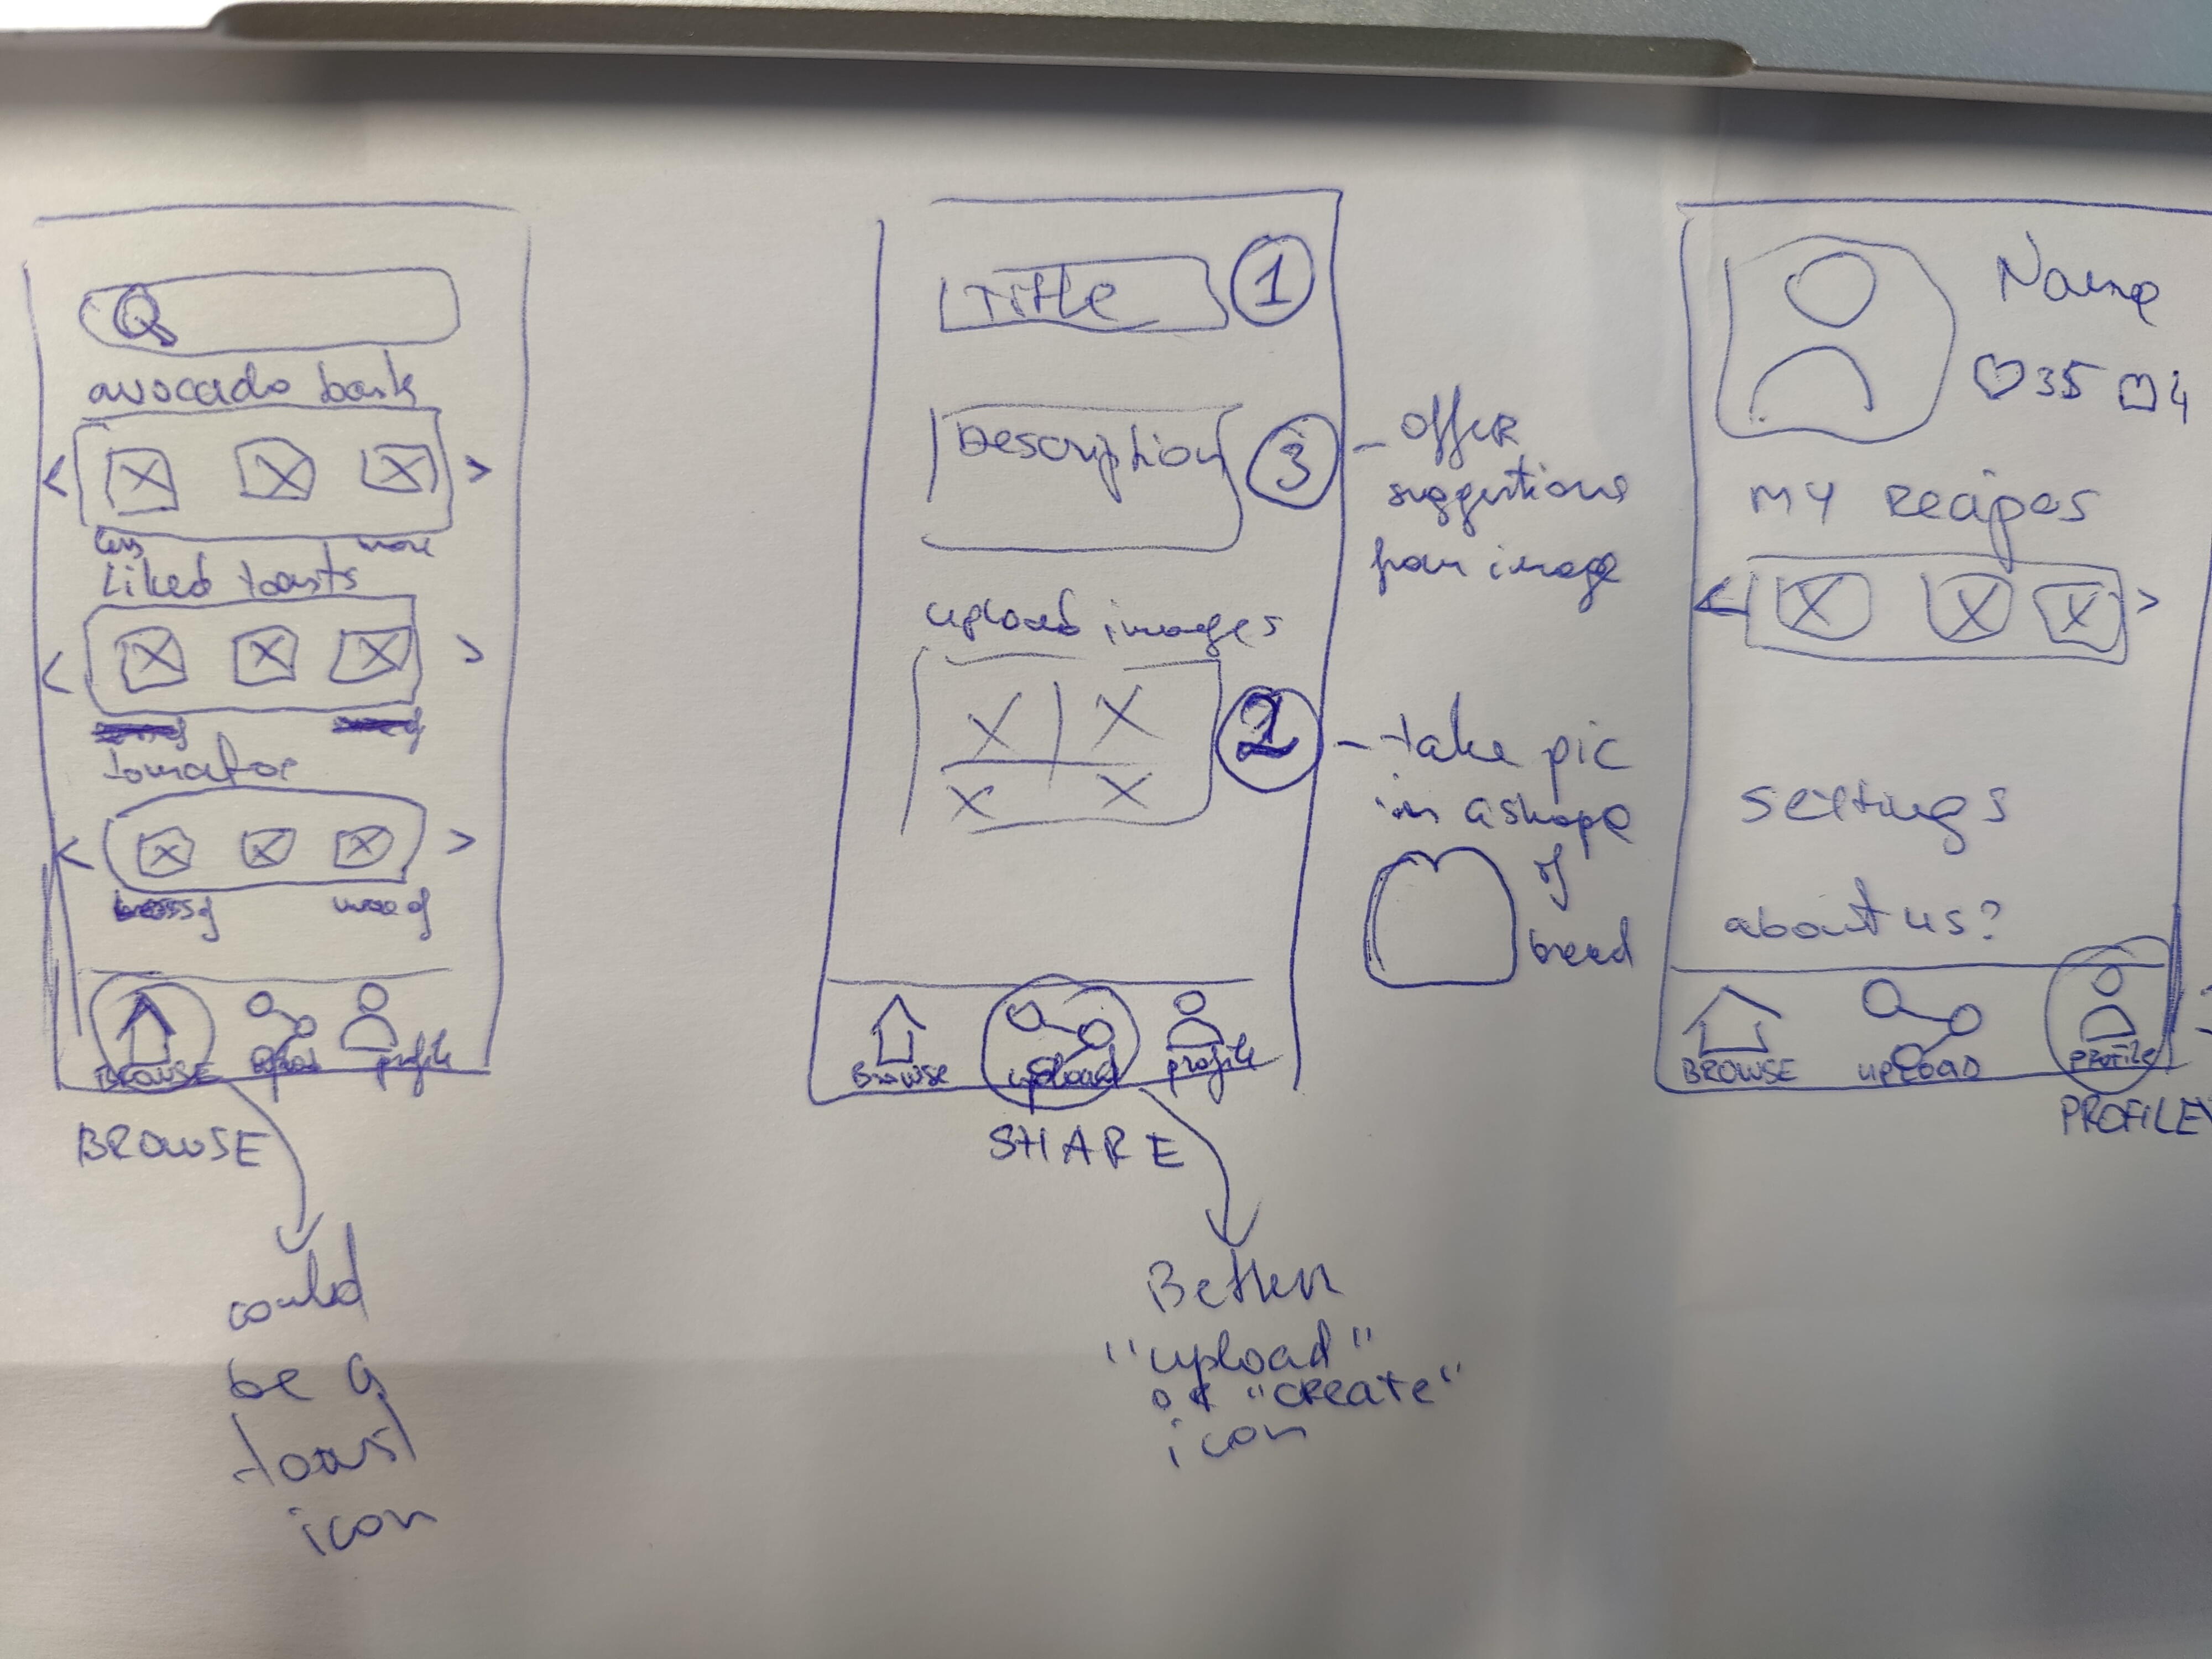 avocado toasts
<
>
less
more
Liked toasts
<
>
tomatoe
<
>
more of
BROWSE
upload
profile
BROWSE
could
be a
toast
icon
Title
1
Description
3
- offer
suggestions
from image
upload images
2
- take pic
in a shape
of
bread
Browse
upload
profile
SHARE
Better
"upload"
or "create"
icon
Name
35
4
MY Recipes
<
>
settings
about us?
BROWSE
UPLOAD
PROFILE
PROFILE